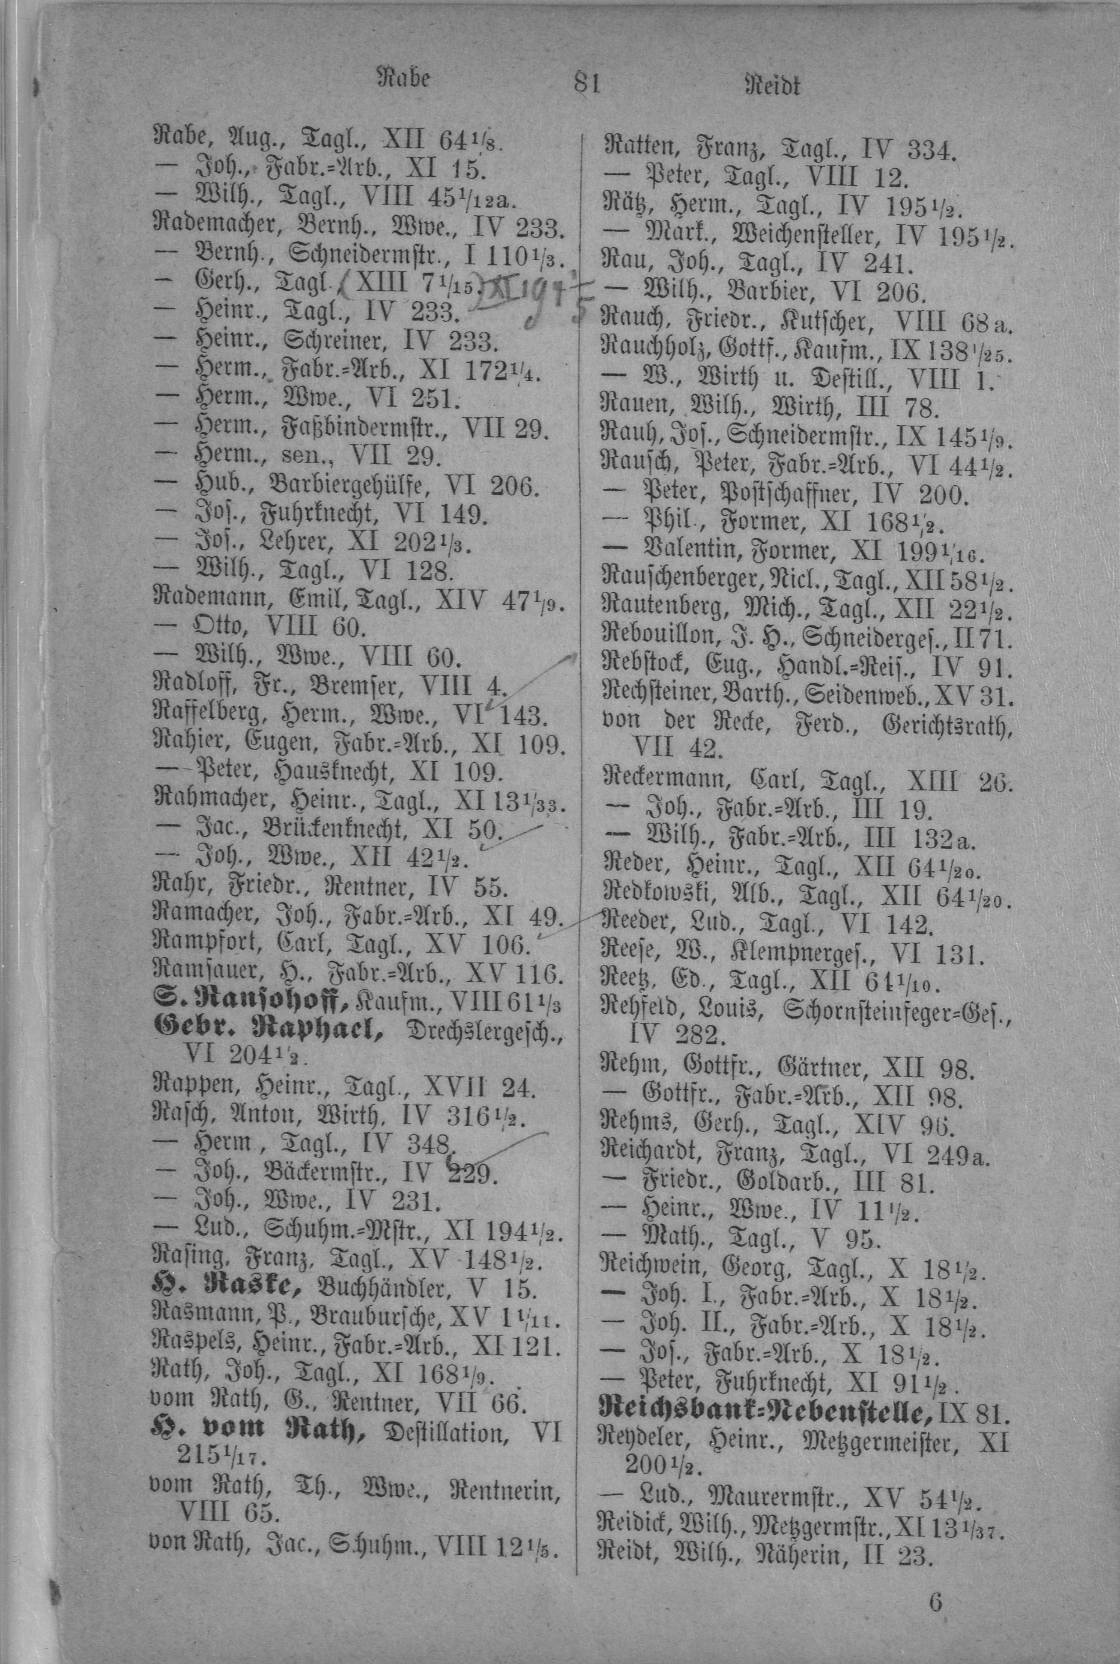 Rabe
81
Neidt
Rabe, Aug., Tagl., XII 64 1/8.
— Joh., Fabr.=Arb., XI 15.
— Wilh., Tagl., VIII 45 1/12a.
Rademacher, Bernh., Wwe., IV 233.
— Bernh., Schneidermstr., I 110 1/3.
— Gerh., Tagl. (XIII 7 1/15.) XI 194
— Heinr., Tagl., IV 233.
— Heinr., Schreiner, IV 233.
— Herm., Fabr.=Arb., XI 172 1/4.
— Herm., Wwe., VI 251.
— Herm., Faßbindermstr., VII 29.
— Herm., sen., VII 29.
— Hub., Barbiergehülfe, VI 206.
— Jos., Fuhrknecht, VI 149.
— Jos., Lehrer, XI 202 1/3.
— Wilh., Tagl., VI 128.
Rademann, Emil, Tagl., XIV 47 1/9.
— Otto, VIII 60.
— Wilh., Wwe., VIII 60.
Radloff, Fr., Bremser, VIII 4.
Raffelberg, Herm., Wwe., VI 143.
Rahier, Eugen, Fabr.=Arb., XI 109.
— Peter, Hausknecht, XI 109.
Rahmacher, Heinr., Tagl., XI 13 1/33.
— Jac., Brückenknecht, XI 50.
— Joh., Wwe., XII 42 1/2.
Rahr, Friedr., Rentner, IV 55.
Ramacher, Joh., Fabr.=Arb., XI 49.
Rampfort, Carl, Tagl., XV 106.
Ramsauer, H., Fabr.=Arb., XV 116.
S. Ransohoff, Kaufm., VIII 61 1/3
Gebr. Raphael, Drechslergesch.,
VI 204 1/2.
Rappen, Heinr., Tagl., XVII 24.
Rasch, Anton, Wirth, IV 316 1/2.
— Herm, Tagl., IV 348.
— Joh., Bäckermstr., IV 229.
— Joh., Wwe., IV 231.
— Lud., Schuhm.=Mstr., XI 194 1/2.
Rasing, Franz, Tagl., XV 148 1/2.
H. Raske, Buchhändler, V 15.
Rasmann, P., Braubursche, XV 1 1/11.
Raspels, Heinr., Fabr.=Arb., XI 121.
Rath, Joh., Tagl., XI 168 1/9.
vom Rath, G., Rentner, VII 66.
H. vom Rath, Destillation, VI
215 1/17.
vom Rath, Th., Wwe., Rentnerin,
VIII 65.
von Rath, Jac., Schuhm., VIII 12 1/5.
Ratten, Franz, Tagl., IV 334.
— Peter, Tagl., VIII 12.
Rätz, Herm., Tagl., IV 195 1/2.
— Mark., Weichensteller, IV 195 1/2.
Rau, Joh., Tagl., IV 241.
— Wilh., Barbier, VI 206.
Rauch, Friedr., Kutscher, VIII 68 a.
Rauchholz, Gottf., Kaufm., IX 138 1/25.
— W., Wirth u. Destill., VIII 1.
Rauen, Wilh., Wirth, III 78.
Rauh, Jos., Schneidermstr., IX 145 1/9.
Rausch, Peter, Fabr.=Arb., VI 44 1/2.
— Peter, Postschaffner, IV 200.
— Phil., Former, XI 168 1/2.
— Valentin, Former, XI 199 1/16.
Rauschenberger, Nicl., Tagl., XII 58 1/2.
Rautenberg, Mich., Tagl., XII 22 1/2.
Rebouillon, J. H., Schneiderges., II 71.
Rebstock, Eug., Handl.=Reis., IV 91.
Rechsteiner, Barth., Seidenweb., XV 31.
von der Recke, Ferd., Gerichtsrath,
VII 42.
Reckermann, Carl, Tagl., XIII 26.
— Joh., Fabr.=Arb., III 19.
— Wilh., Fabr.=Arb., III 132 a.
Reder, Heinr., Tagl., XII 64 1/20.
Redkowski, Alb., Tagl., XII 64 1/20.
Reeder, Lud., Tagl., VI 142.
Reese, W., Klempnerges., VI 131.
Reetz, Ed., Tagl., XII 61 1/10.
Rehfeld, Louis, Schornsteinfeger=Ges.,
IV 282.
Rehm, Gottfr., Gärtner, XII 98.
— Gottfr., Fabr.=Arb., XII 98.
Rehms, Gerh., Tagl., XIV 96.
Reichardt, Franz, Tagl., VI 249 a.
— Friedr., Goldarb., III 81.
— Heinr., Wwe., IV 11 1/2.
— Math., Tagl., V 95.
Reichwein, Georg, Tagl., X 18 1/2.
— Joh. I., Fabr.=Arb., X 18 1/2.
— Joh. II., Fabr.=Arb., X 18 1/2.
— Jos., Fabr.=Arb., X 18 1/2.
— Peter, Fuhrknecht, XI 91 1/2.
Reichsbank=Nebenstelle, IX 81.
Reydeler, Heinr., Metzgermeister, XI
200 1/2.
— Lud., Maurermstr., XV 54 1/2.
Reidick, Wilh., Metzgermstr., XI 13 1/37.
Reidt, Wilh., Näherin, II 23.
6